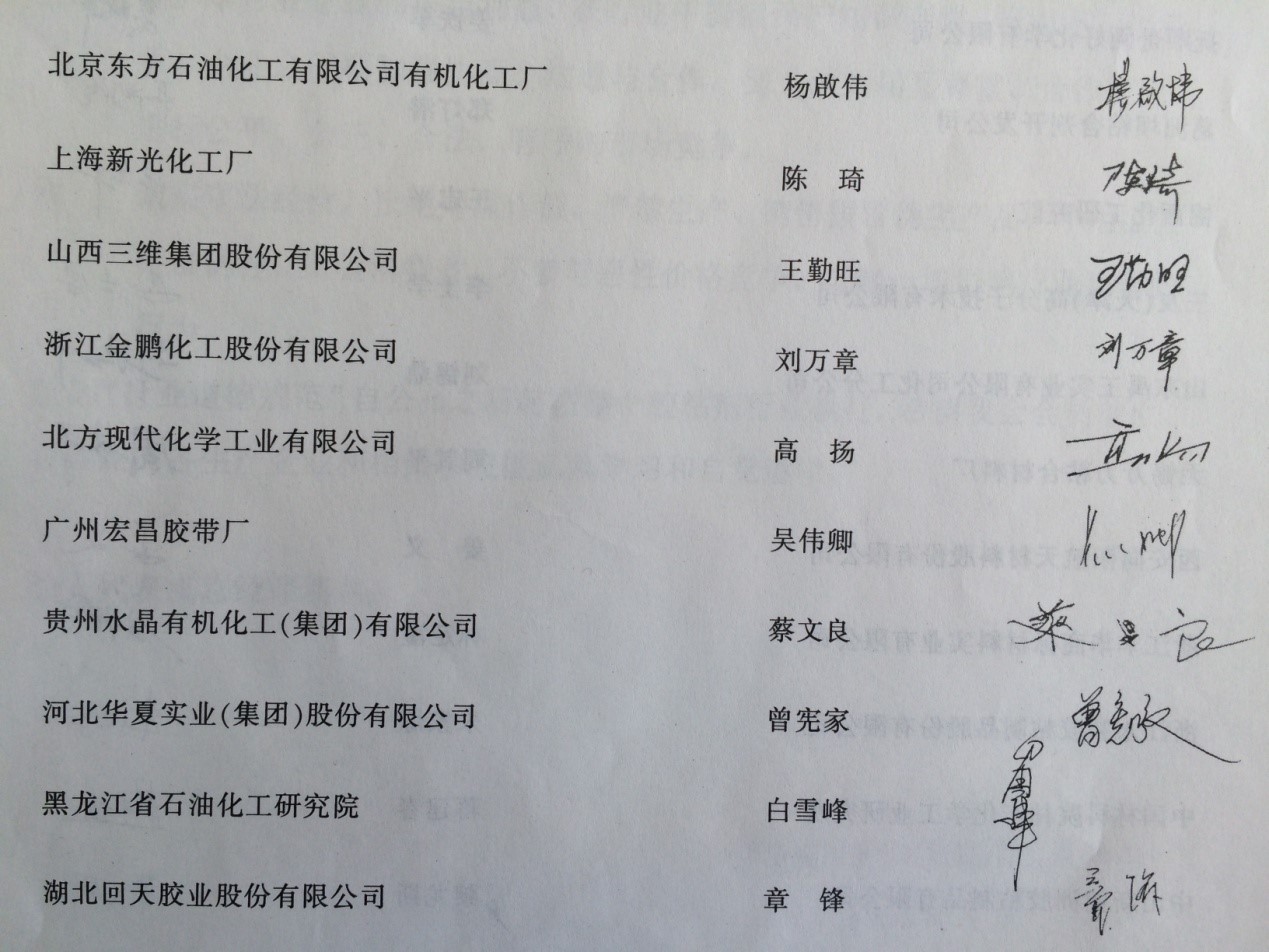 北京东方石油化工有限公司有机化工厂 杨啟伟 杨啟伟
上海新光化工厂 陈 琦 陈琦
山西三维集团股份有限公司 王勤旺 王勤旺
浙江金鹏化工股份有限公司 刘万章 刘万章
北方现代化学工业有限公司 高 扬 高扬
广州宏昌胶带厂 吴伟卿
贵州水晶有机化工(集团)有限公司 蔡文良 蔡文良
河北华夏实业(集团)股份有限公司 曾宪家 曾宪家
黑龙江省石油化工研究院 白雪峰
湖北回天胶业股份有限公司 章 锋 章锋